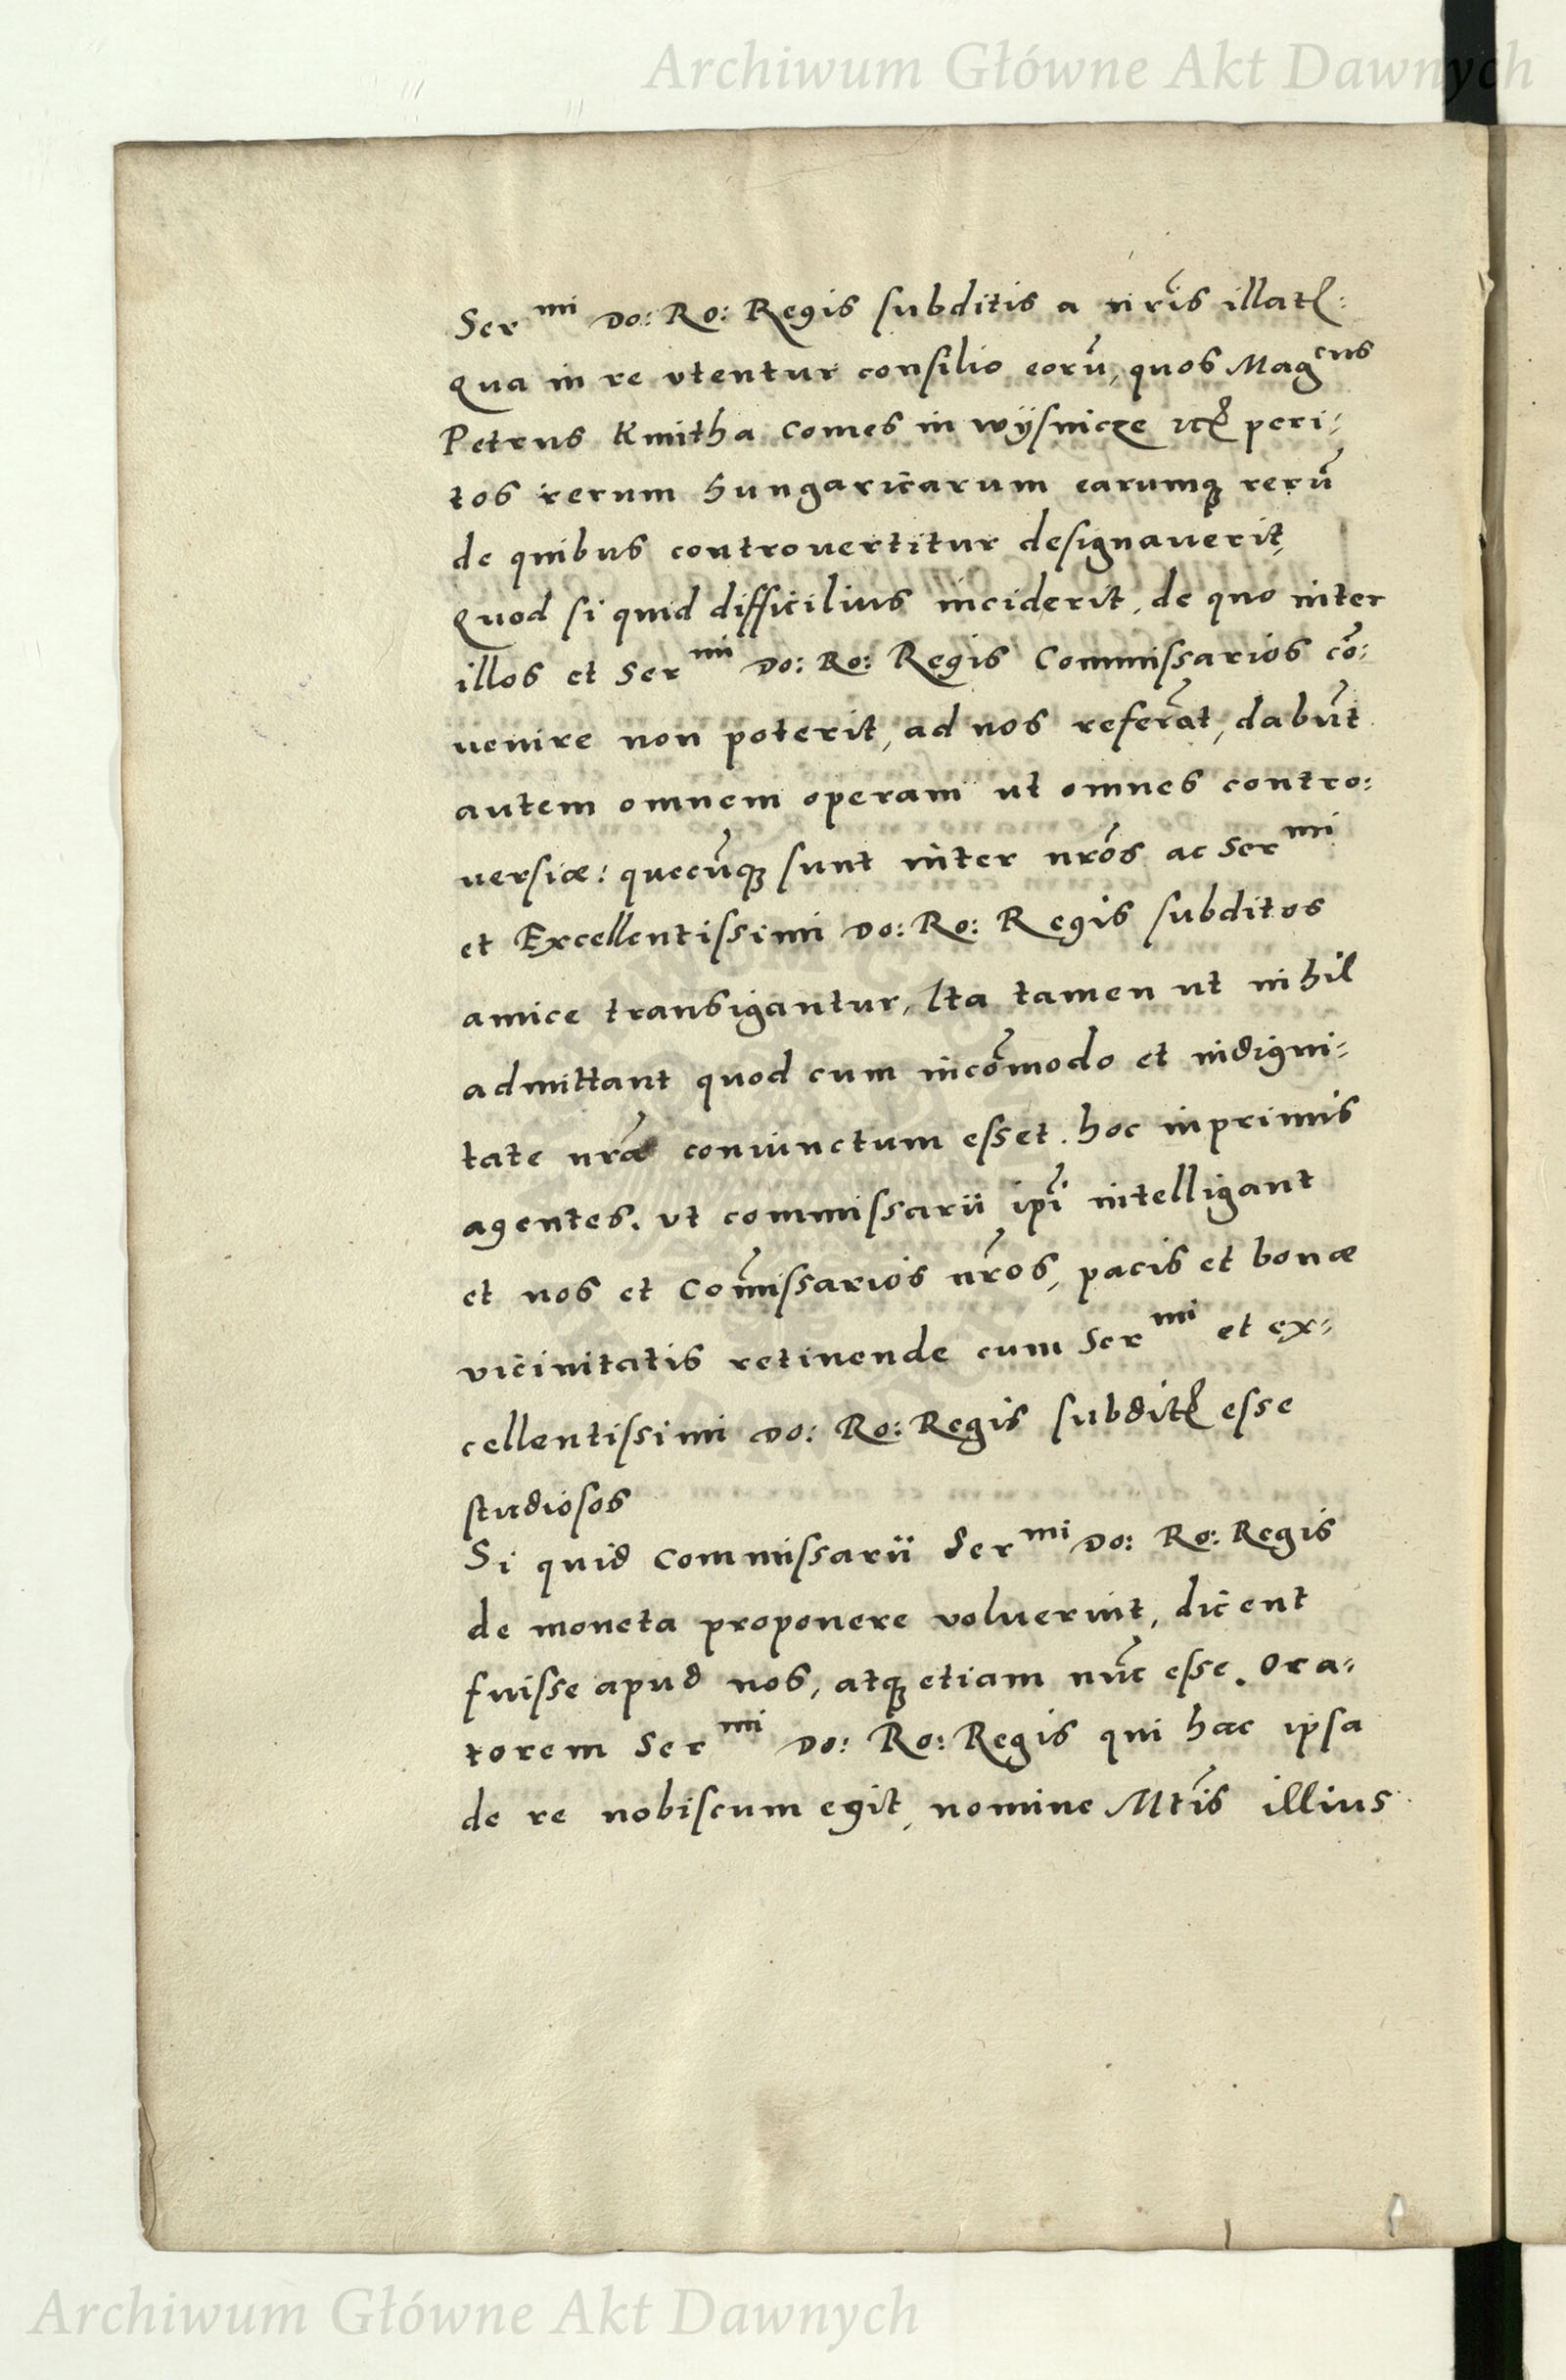 Archiwum Główne Akt Dawnych
Ser^mi Do: Ro: Regis subditis a nr̃is illatꝭ:
Qua in re vtentur consilio eorũ, quos Mag^cus
Petrus Kmitha comes in wÿsnicze ꝛcꝭ peri-
tos rerum hungaricarum earumqꝫ rerũ
de quibus controuertitur designauerit,
Quod si quid difficilius inciderit, de quo inter
illos et Ser^mi Do: Ro: Regis Commissarios cõ:
uenire non poterit, ad nos referãt, dabũt
autem omnem operam ut omnes contro:
uersiæ: quecũqꝫ sunt inter nrõs ac Ser^mi
et Excellentissimi Do: Ro: Regis subditos
amice transigantur, Ita tamen ut nihil
admittant quod cum incõmodo et indigni-
tate nrãe coniunctum esset. hoc inprimis
agentes. vt commissarii ip̃i intelligant
et nos et Cõmissarios nr̃os, pacis et bonæ
vicinitatis retinende cum Ser^mi et ex-
cellentissimi Do: Ro: Regis subditꝭ esse
studiosos
Si quid commissarii Ser^mi Do: Ro: Regis
de moneta proponere voluerint, dicent
fuisse apud nos, atqꝫ etiam nũc esse. Ora-
torem Ser^mi Do: Ro: Regis qui hac ipsa
de re nobiscum egit, nomine Mtĩs illius
Archiwum Główne Akt Dawnych